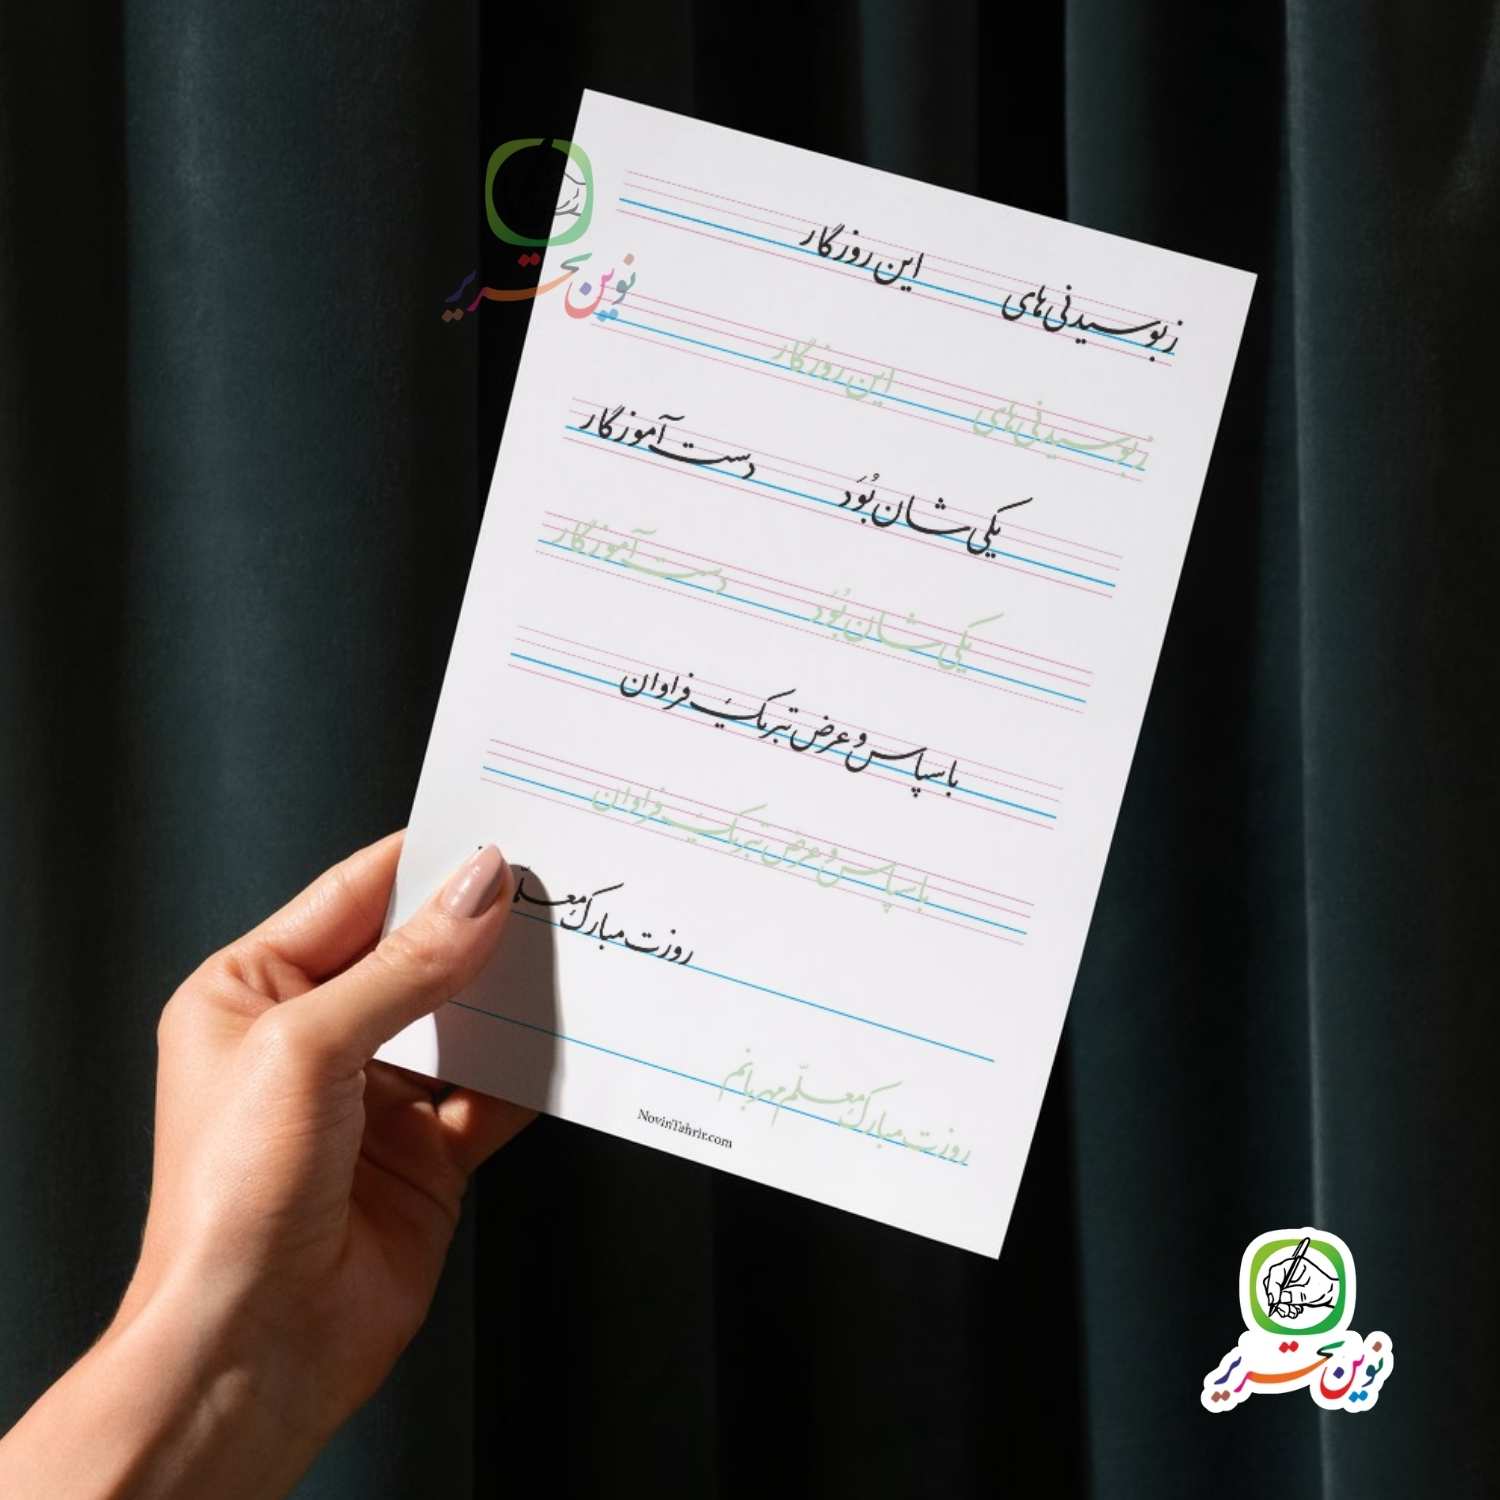 ز بوسیدنی‌های این روزگار
ز بوسیدنی‌های این روزگار
یکی‌شان بُوَد دست آموزگار
یکی‌شان بُوَد دست آموزگار
با سپاس و عرض تبریک فراوان
با سپاس و عرض تبریک فراوان
روزت مبارک معلّم
روزت مبارک معلّم مهربانم
NovinTahrir.com
نوین تحریر
نوین تحریر